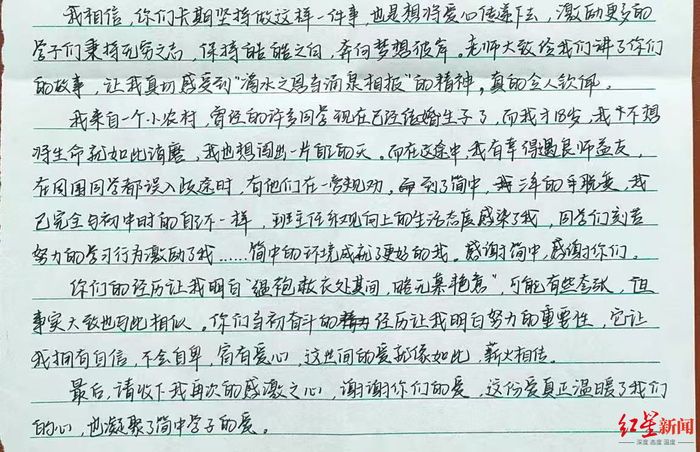 我相信，你们长期坚持做这样一件事，也是想将爱心传递下去，激励更多的
学子们秉持无穷之志，保持皓皓之白，奔向梦想彼岸。老师大致给我们讲了你们
的故事，让我真切感受到“滴水之恩当涌泉相报”的精神，真的令人钦佩。
我来自一个小农村，曾经的许多同学现在已经结婚生子了，而我才18岁，我不想
将生命就如此消磨，我也想闯出一片自己的天。而在这途中，我有幸得遇良师益友，
在周围同学都误入歧途时，有他们在一旁规劝。到了简中，三年的手脱变，我
已完全与初中时的自己不一样，班主任乐观向上的生活态度感染了我，同学们刻苦
努力的学习行为激励了我……简中的环境成就了更好的我。感谢简中，感谢你们。
你们的经历让我明白“缊袍敝衣处其间，略无慕艳意”，可能有些夸张，但
事实大致也与此相似。你们当初奋斗的经历让我明白努力的重要性，它让
我拥有自信，不会自卑，富有爱心，这世间的爱就像如此，薪火相传。
最后，请收下我再次的感激之心，谢谢你们的爱，这份爱真正温暖了我们
的心，也凝聚了简中学子的爱。
红星新闻
深度 态度 温度